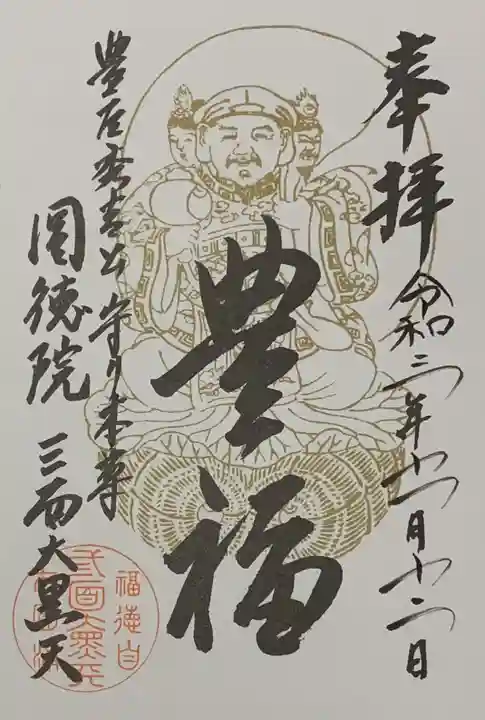 奉拝
令和三年十一月十二日
豊福
豊臣秀吉公守り本尊
圓徳院 三面大黒天
福徳自
三面大黒天